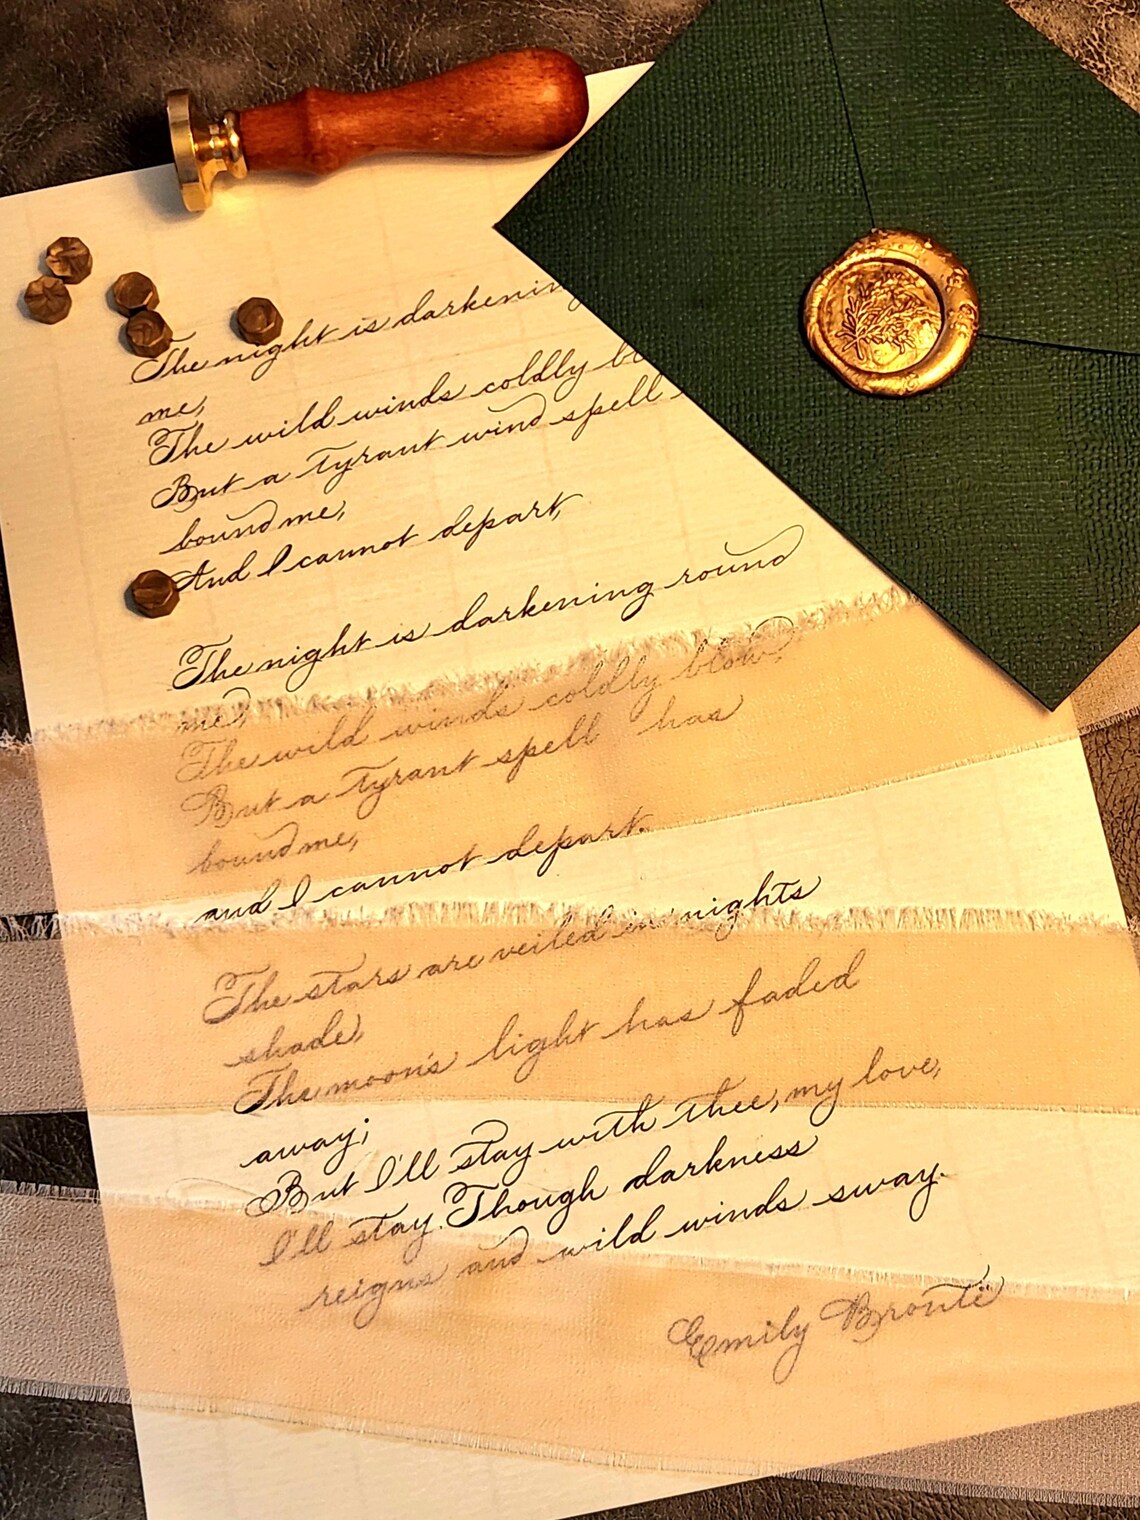 The night is darkening
me,
The wild winds coldly
But a tyrant wind spell
bound me,
And I cannot depart,
The night is darkening round
me,
The wild winds coldly blow?
But a tyrant spell has
bound me,
and I cannot depart.
The stars are veiled in nights
shade,
The moon's light has faded
away;
But I'll stay with thee, my love,
I'll stay. Though darkness
reigns and wild winds sway.
Emily Brontë